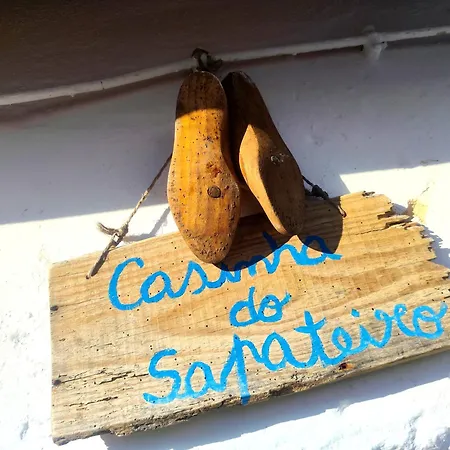 Casinha
do
Sapateiro